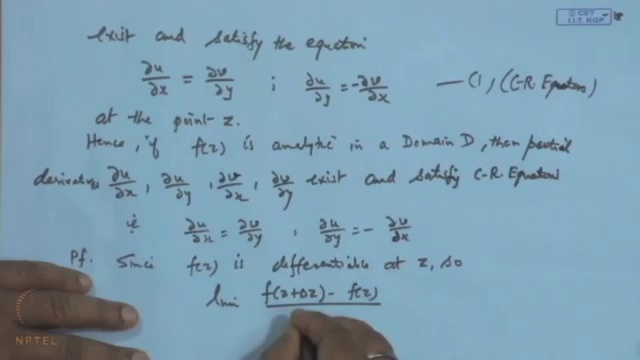 © CET
I.I.T. KGP
exist and satisfy the equation
∂u/∂x = ∂v/∂y ; ∂u/∂y = -∂v/∂x —(1) (C-R. Equations)
at the point z.
Hence, if f(z) is analytic in a Domain D, then partial
derivatives ∂u/∂x, ∂u/∂y, ∂v/∂x, ∂v/∂y exist and satisfy C-R. Equations
∂u/∂x = ∂v/∂y , ∂u/∂y = - ∂v/∂x
Pf. Since f(z) is differentiable at z, so
lim f(z+Δz) - f(z)
NPTEL